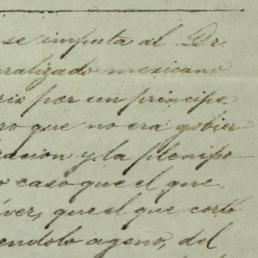 se imputa al Dr.
ralizado mexicano
rio por un principe
ro que no era gobier-
racion y la plenipo-
o caso que el que
ver, que el que cortó
endolo ageno, del